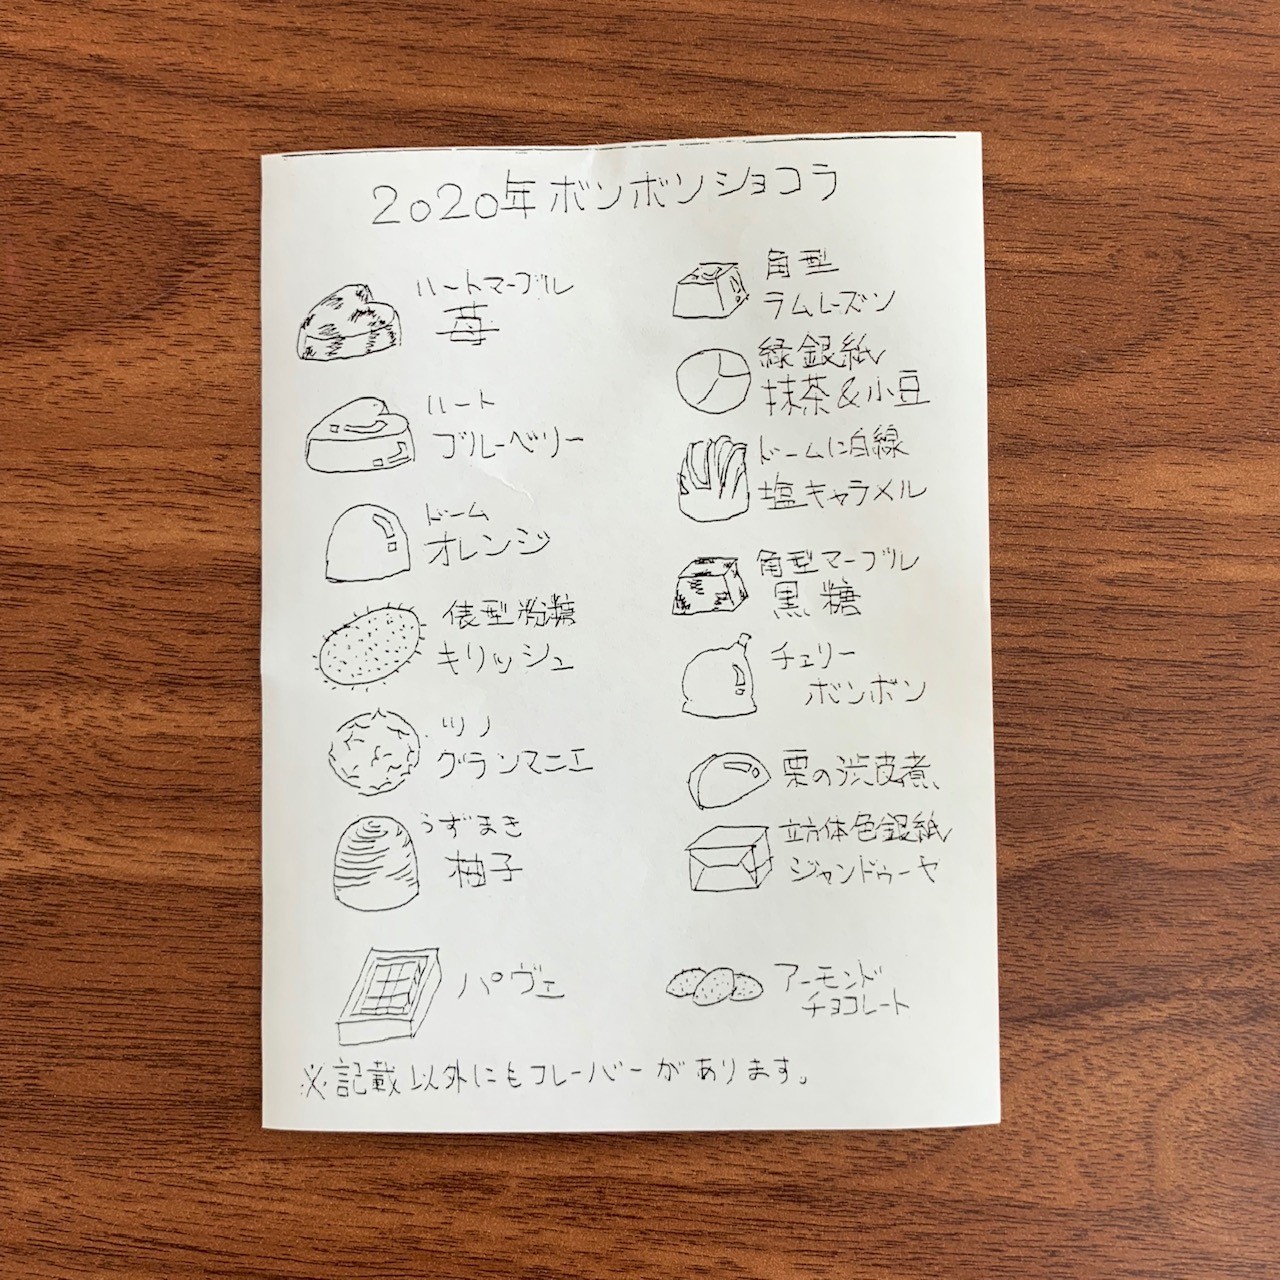 2020年ボンボンショコラ
ハートマーブル
苺
ハート
ブルーベリー
ドーム
オレンジ
俵型粉糖
キリッシュ
ツノ
グランマニエ
うずまき
柚子
パヴェ
角型
ラムレーズン
緑銀紙
抹茶&小豆
ドームに白線
塩キャラメル
角型マーブル
黒糖
チェリー
ボンボン
栗の渋皮煮
立方体色銀紙
ジャンドゥーヤ
アーモンド
チョコレート
※記載以外にもフレーバーがあります。